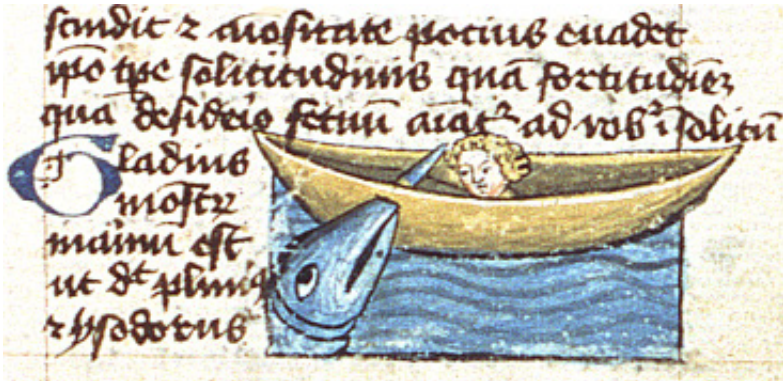 scindit ⁊ aīositate pocius euadet
ipō tꝑe solicitudinis quā fortitudīeꝫ
qua desiderio fetuū aīat᷑ ad rob᷑ ī solitū
Gladius
mōstꝝ
marinū est
ut dt pliniꝰ
⁊ ysodorus